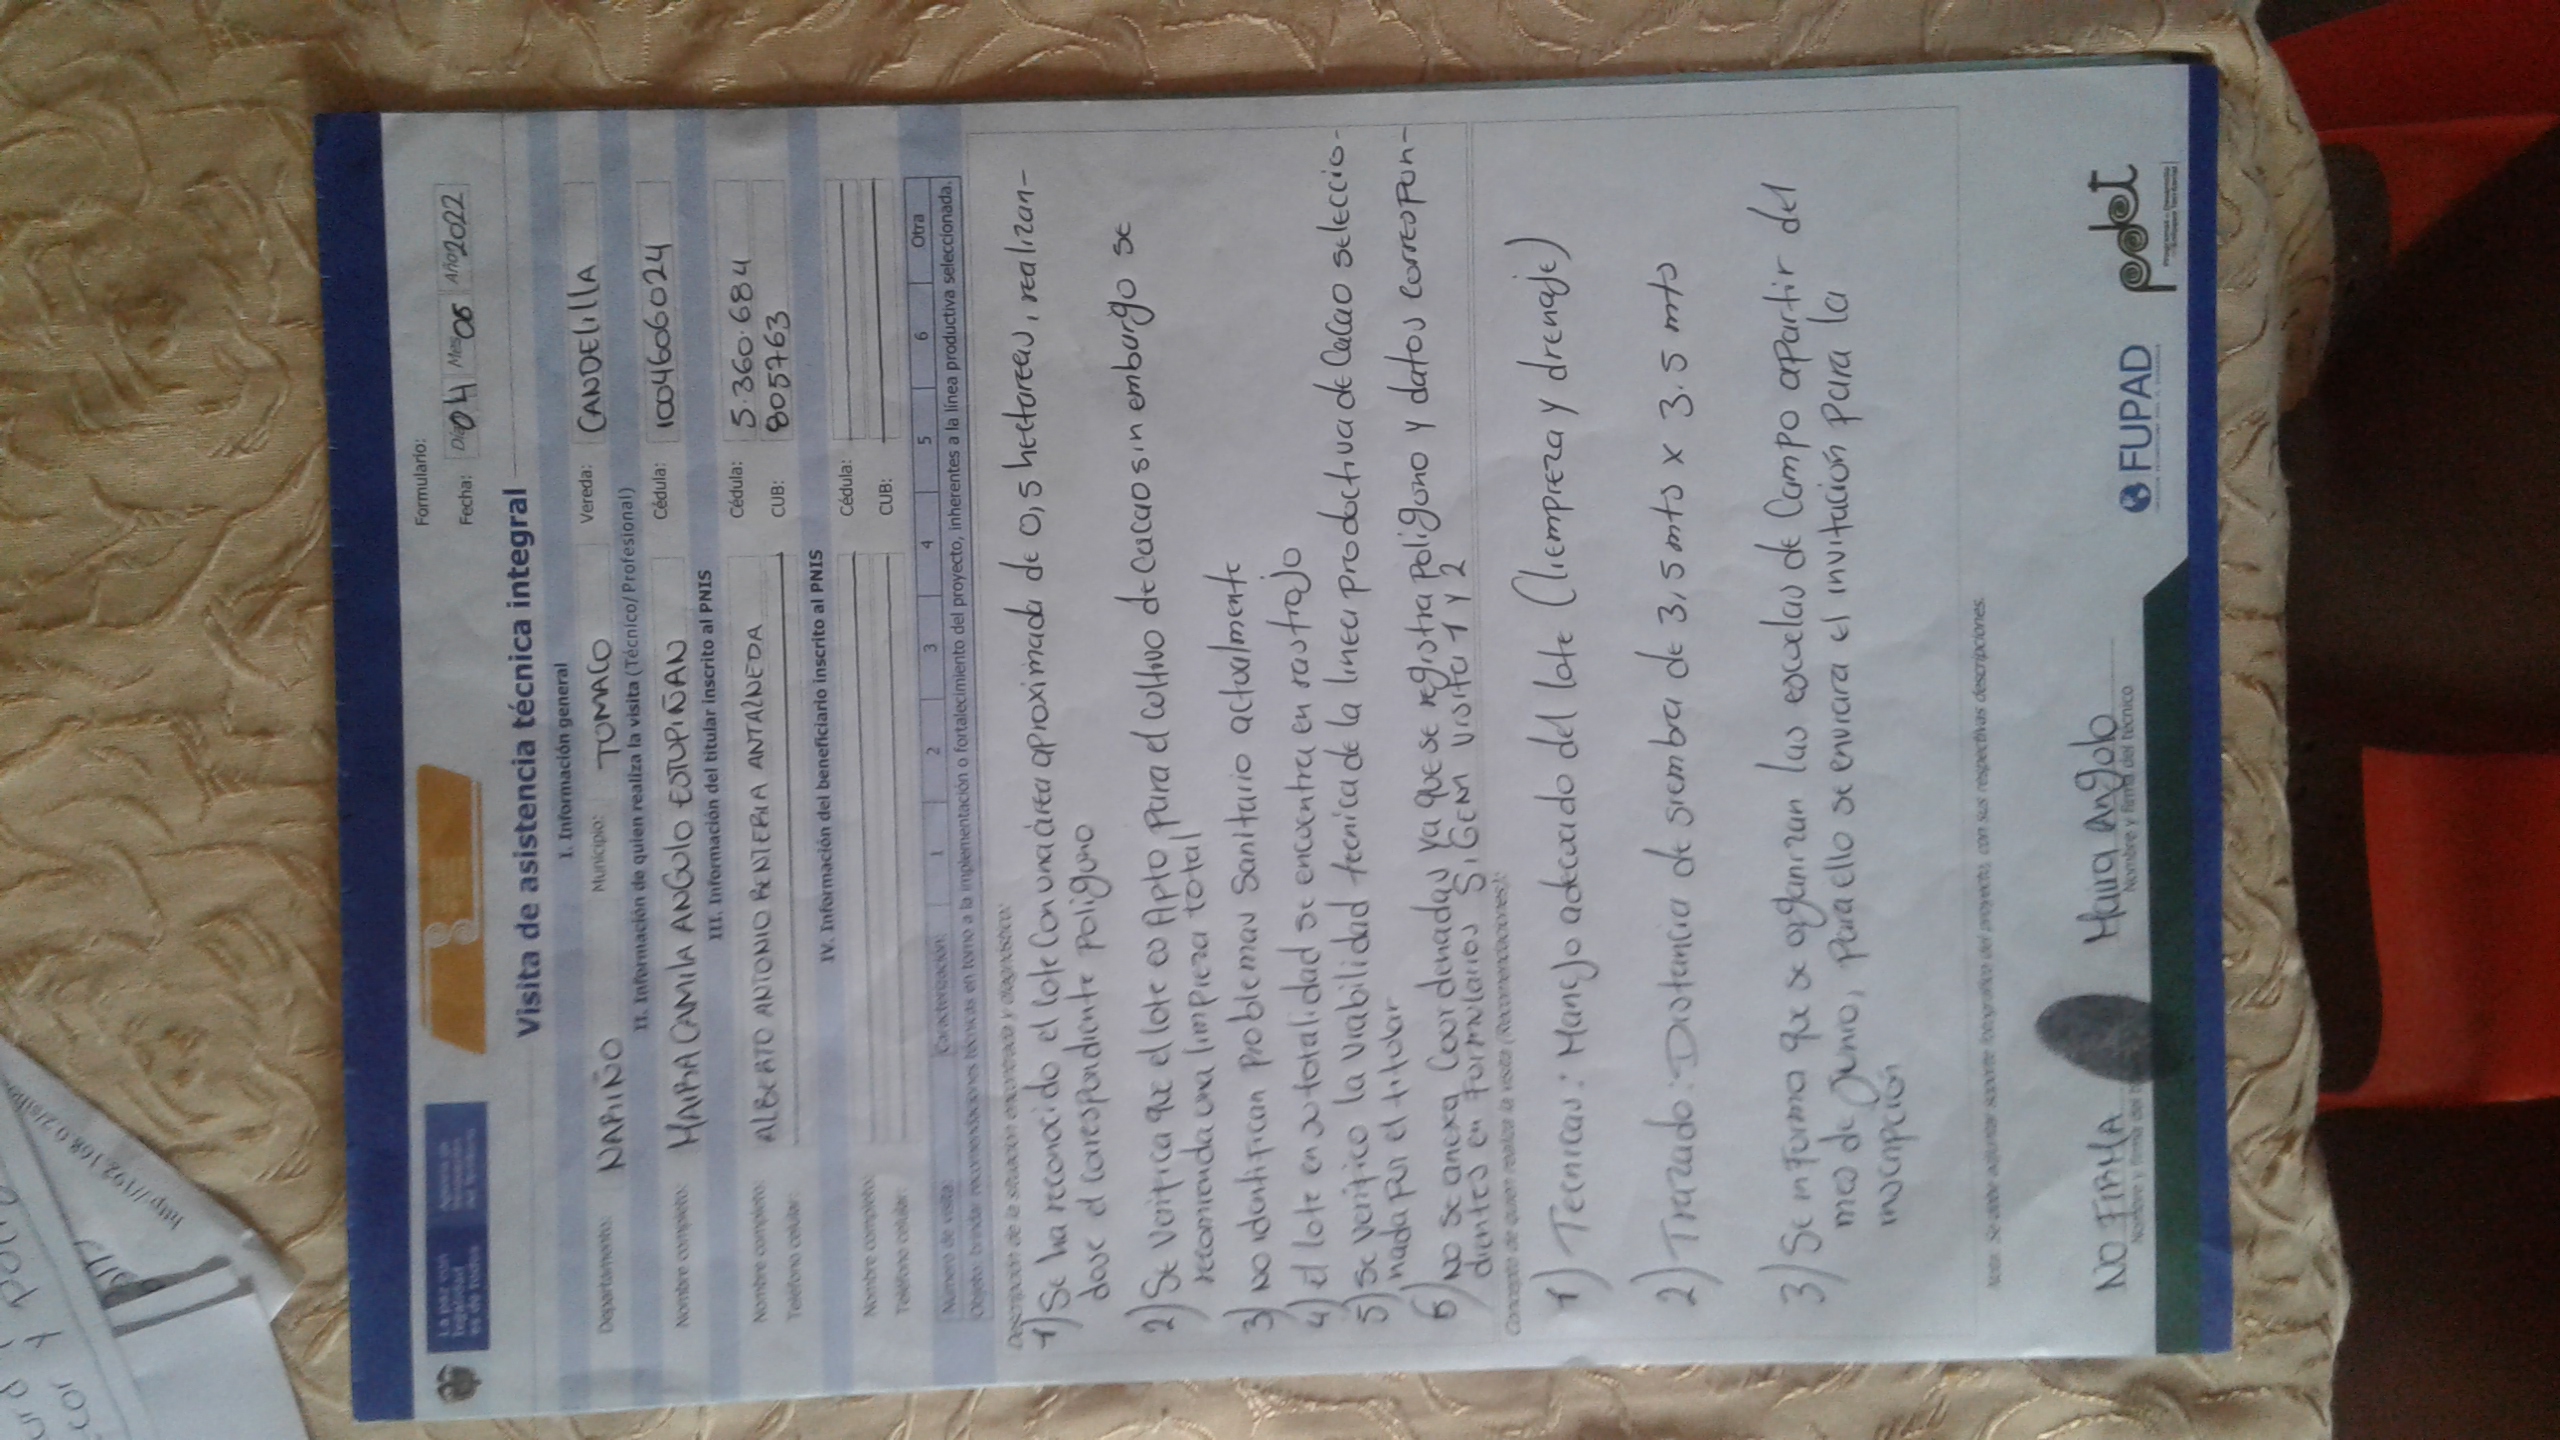 La paz con
legalidad
es de todos
Agencia de
Renovación
del Territorio
Formulario:
Fecha: Día 04 Mes 06 Año 2022
Visita de asistencia técnica integral
I. Información general
Departamento: NARIÑO Municipio: TUMACO Vereda: CANDELILLA
II. Información de quien realiza la visita (Técnico/Profesional)
Nombre completo: MAIRA CAMILA ANGULO ESTUPIÑAN Cédula: 1004606024
III. Información del titular inscrito al PNIS
Nombre completo: ALBERTO ANTONIO RENTERIA ANTAZNEDA Cédula: 5.360.684
Teléfono celular: CUB: 805763
IV. Información del beneficiario inscrito al PNIS
Nombre completo: Cédula:
Teléfono celular: CUB:
Número de visita: Caracterización: 1 2 3 4 5 6 Otra
Objeto: brindar recomendaciones técnicas en torno a la implementación o fortalecimiento del proyecto, inherentes a la línea productiva seleccionada.
Descripción de la situación encontrada y diagnóstico:
1) Se ha reconocido el lote con una área aproximada de 0,5 hectareas, realizan-
dose el correspondiente poligono
2) Se verifica que el lote es Apto para el cultivo de cacao sin emburgo se
recomienda una limpieza total
3) No identifican problemas sanitario actualmente
4) el lote en su totalidad se encuentra en rastrojo
5) se verifico la viabilidad tecnica de la linea productiva de cacao seleccio-
nada por el titular
6) No se anexa coordenadas ya que se registra poligono y datos correspon-
dientes en formularios SIGEM visita 1 y 2
Concepto de quien realiza la visita (Recomendaciones):
1) Tecnicas: Manejo adecuado del lote (liempieza y drenaje)
2) Trazado: Distancia de siembra de 3,5 mts x 3.5 mts
3) Se informa que se organizan las escuelas de campo apartir del
mes de Junio, para ello se enviara el invitación para la
inscripción
Nota: Se debe adjuntar soporte fotográfico del proyecto, con sus respectivas descripciones.
NO FIRMA Maira Angulo
Nombre y firma del Nombre y Firma del técnico
FUPAD
pdet
Programas de Desarrollo
con Enfoque Territorial
http://192.168.0.2/sis